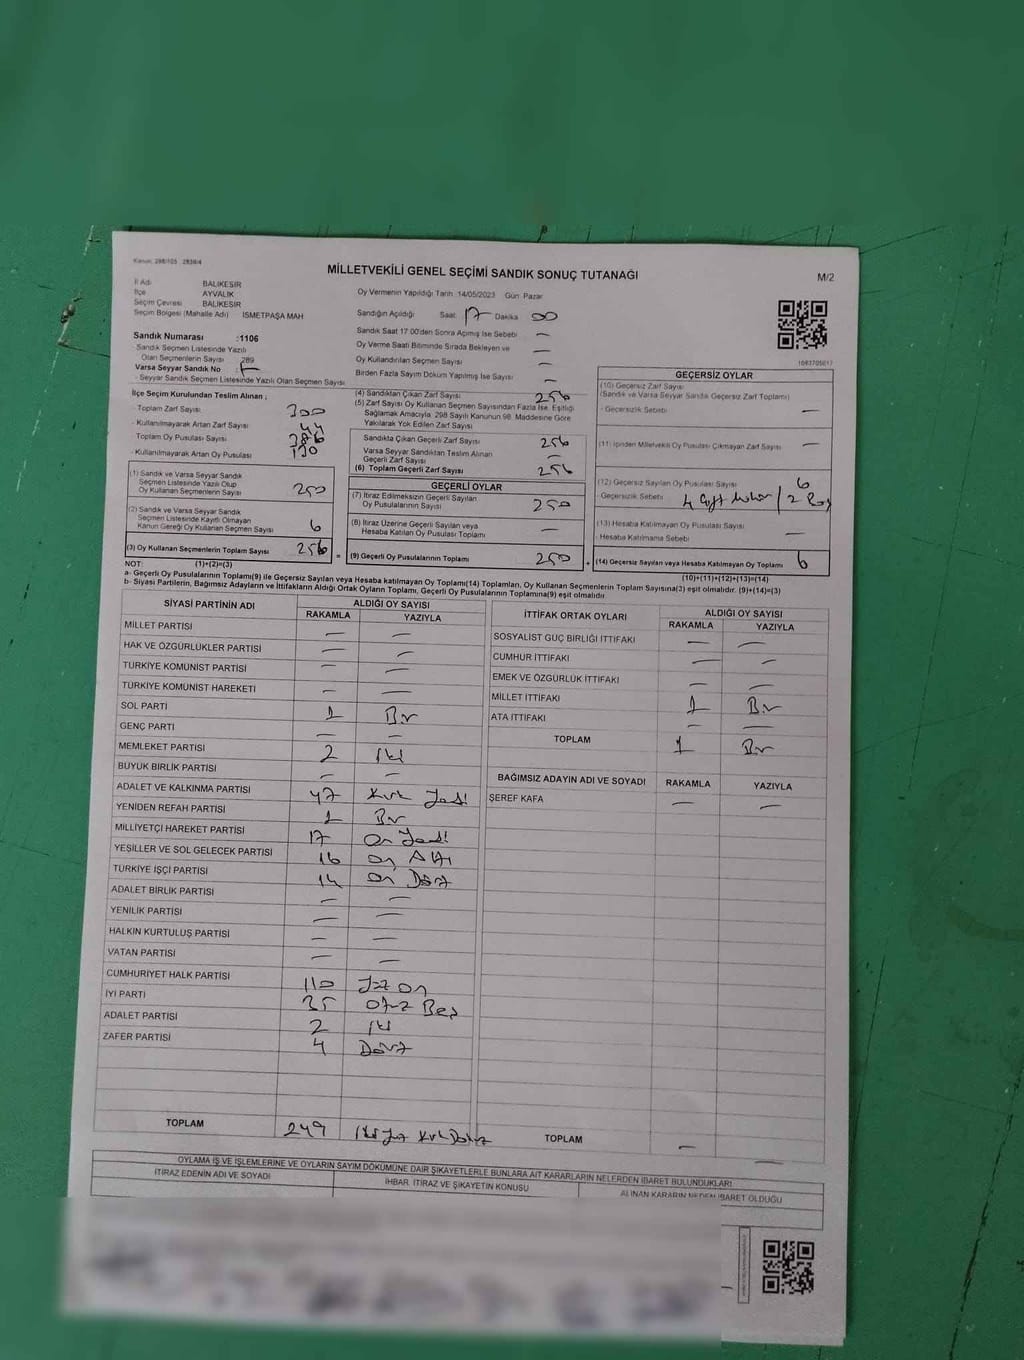 Kanun: 298/105 2839/4
MİLLETVEKİLİ GENEL SEÇİMİ SANDIK SONUÇ TUTANAĞI
M/2
İl Adı BALIKESİR
İlçe AYVALIK
Seçim Çevresi BALIKESİR
Seçim Bölgesi (Mahalle Adı) İSMETPAŞA MAH
Oy Vermenin Yapıldığı Tarih 14/05/2023 Gün Pazar
Sandığın Açıldığı Saat 17 Dakika 00
Sandık Saat 17:00'den Sonra Açılmış İse Sebebi —
Oy Verme Saati Bitiminde Sırada Bekleyen ve —
Oy Kullandırılan Seçmen Sayısı —
Birden Fazla Sayım Döküm Yapılmış İse Sayısı —
1083705017
Sandık Numarası :1106
Sandık Seçmen Listesinde Yazılı
Olan Seçmenlerin Sayısı 289
Varsa Seyyar Sandık No :
- Seyyar Sandık Seçmen Listesinde Yazılı Olan Seçmen Sayısı
İlçe Seçim Kurulundan Teslim Alınan ;
- Toplam Zarf Sayısı 300
- Kullanılmayarak Artan Zarf Sayısı 44
Toplam Oy Pusulası Sayısı
- Kullanılmayarak Artan Oy Pusulası
(1) Sandık ve Varsa Seyyar Sandık
Seçmen Listesinde Yazılı Olup
Oy Kullanan Seçmenlerin Sayısı 250
(2) Sandık ve Varsa Seyyar Sandık
Seçmen Listesinde Kayıtlı Olmayan
Kanun Gereği Oy Kullanan Seçmen Sayısı 6
(3) Oy Kullanan Seçmenlerin Toplam Sayısı 256 =
(4) Sandıktan Çıkan Zarf Sayısı 256
(5) Zarf Sayısı Oy Kullanan Seçmen Sayısından Fazla İse, Eşitliği
Sağlamak Amacıyla, 298 Sayılı Kanunun 98. Maddesine Göre
Yakılarak Yok Edilen Zarf Sayısı
Sandıkta Çıkan Geçerli Zarf Sayısı 256
Varsa Seyyar Sandıktan Teslim Alınan —
Geçerli Zarf Sayısı
(6) Toplam Geçerli Zarf Sayısı 256
GEÇERLİ OYLAR
(7) İtiraz Edilmeksizin Geçerli Sayılan
Oy Pusulalarının Toplamı 250
(8) İtiraz Üzerine Geçerli Sayılan veya
Hesaba Katılan Oy Pusulası Toplamı —
(9) Geçerli Oy Pusulalarının Toplamı 250 +
GEÇERSİZ OYLAR
(10) Geçersiz Zarf Sayısı
(Sandık ve Varsa Seyyar Sandık Geçersiz Zarf Toplamı)
- Geçersizlik Sebebi: —
(11) İçinden Milletvekili Oy Pusulası Çıkmayan Zarf Sayısı —
(12) Geçersiz Sayılan Oy Pusulası Sayısı 6
Geçersizlik Sebebi: 4 Çift / 2 Boş
(13) Hesaba Katılmayan Oy Pusulası Sayısı
- Hesaba Katılmama Sebebi —
(14) Geçersiz Sayılan veya Hesaba Katılmayan Oy Toplamı 6
NOT: (1)+(2)=(3) (10)+(11)+(12)+(13)=(14)
a- Geçerli Oy Pusulalarının Toplamı(9) ile Geçersiz Sayılan veya Hesaba katılmayan Oy Toplamı(14) Toplamları, Oy Kullanan Seçmenlerin Toplam Sayısına(3) eşit olmalıdır. (9)+(14)=(3)
b- Siyasi Partilerin, Bağımsız Adayların ve İttifakların Aldığı Ortak Oyların Toplamı, Geçerli Oy Pusulalarının Toplamına(9) eşit olmalıdır.
SİYASİ PARTİNİN ADI ALDIĞI OY SAYISI
RAKAMLA YAZIYLA
MİLLET PARTİSİ — —
HAK VE ÖZGÜRLÜKLER PARTİSİ — —
TÜRKİYE KOMÜNİST PARTİSİ — —
TÜRKİYE KOMÜNİST HAREKETİ — —
SOL PARTİ 1 Bir
GENÇ PARTİ — —
MEMLEKET PARTİSİ 2 İki
BÜYÜK BİRLİK PARTİSİ — —
ADALET VE KALKINMA PARTİSİ 47 Kırk Yedi
YENİDEN REFAH PARTİSİ 1 Bir
MİLLİYETÇİ HAREKET PARTİSİ 17 On Yedi
YEŞİLLER VE SOL GELECEK PARTİSİ 16 On Altı
TÜRKİYE İŞÇİ PARTİSİ 14 On Dört
ADALET BİRLİK PARTİSİ — —
YENİLİK PARTİSİ — —
HALKIN KURTULUŞ PARTİSİ — —
VATAN PARTİSİ — —
CUMHURİYET HALK PARTİSİ 110 Yüz On
İYİ PARTİ 35 Otuz Beş
ADALET PARTİSİ 2 İki
ZAFER PARTİSİ 4 Dört
TOPLAM 249 İki Yüz Kırk Dokuz
İTTİFAK ORTAK OYLARI ALDIĞI OY SAYISI
RAKAMLA YAZIYLA
SOSYALİST GÜÇ BİRLİĞİ İTTİFAKI — —
CUMHUR İTTİFAKI — —
EMEK VE ÖZGÜRLÜK İTTİFAKI — —
MİLLET İTTİFAKI 1 Bir
ATA İTTİFAKI — —
TOPLAM 1 Bir
BAĞIMSIZ ADAYIN ADI VE SOYADI RAKAMLA YAZIYLA
ŞEREF KAFA — —
TOPLAM — —
OYLAMA İŞ VE İŞLEMLERİNE VE OYLARIN SAYIM DÖKÜMÜNE DAİR ŞİKAYETLERLE BUNLARA AİT KARARLARIN NELERDEN İBARET BULUNDUKLARI
İTİRAZ EDENİN ADI VE SOYADI İHBAR, İTİRAZ VE ŞİKAYETİN KONUSU ALINAN KARARIN NEDEN İBARET OLDUĞU